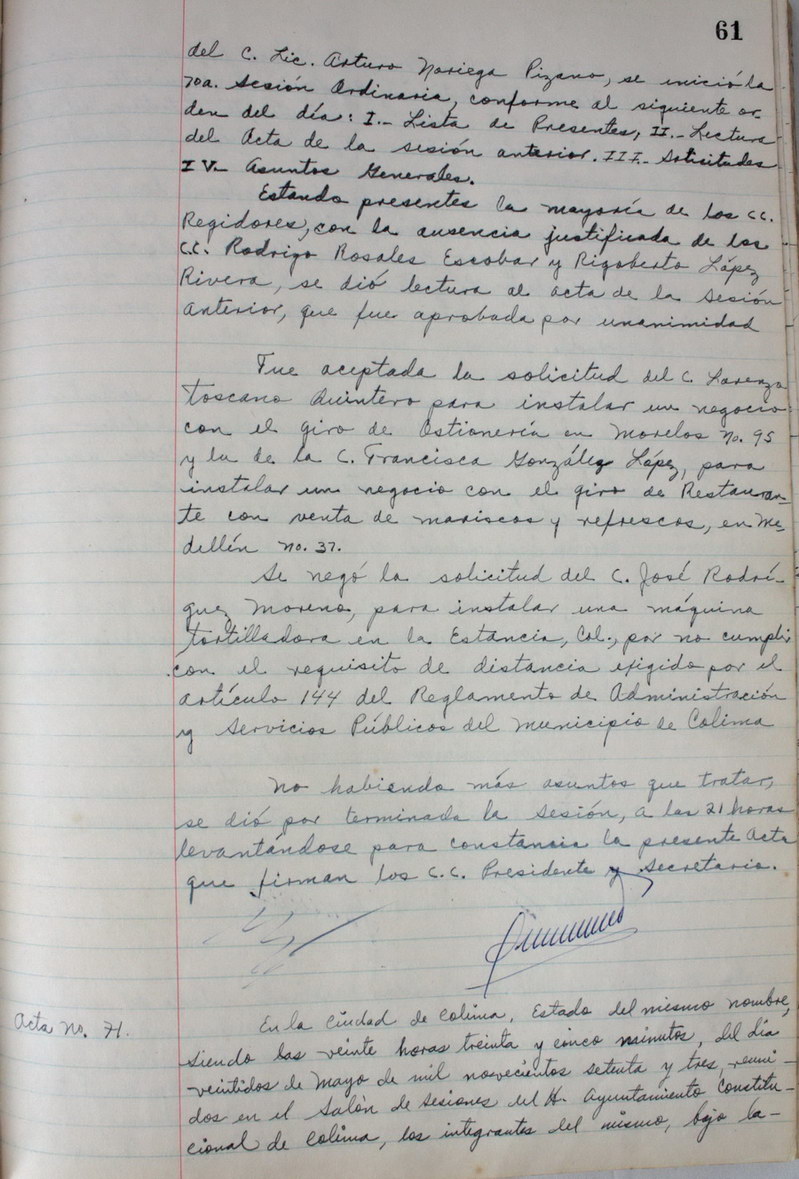 61
del C. Lic. Arturo Noriega Pizano, se inició la
70a. Sesión Ordinaria, conforme al siguiente or
den del día: I.- Lista de Presentes, II.- Lectura
del Acta de la sesión anterior. III.- Solicitudes
IV.- Asuntos Generales.
Estando presentes la mayoría de los CC.
Regidores, con la ausencia justificada de los
C.C. Rodrigo Rosales Escobar y Rigoberto López
Rivera, se dió lectura al acta de la sesión
anterior, que fue aprobada por unanimidad
Fue aceptada la solicitud del C. Lorenzo
Toscano Quintero para instalar un negocio
con el giro de Ostionería en Morelos No. 95
y la de la C. Francisca González López, para
instalar un negocio con el giro de Restauran-
te con venta de mariscos y refrescos, en Me-
dellín no. 37.
Se negó la solicitud del C. José Rodrí-
guez Moreno, para instalar una máquina
tortilladora en la Estancia, Col., por no cumplir
con el requisito de distancia exigido por el
artículo 144 del Reglamento de Administración
y Servicios Públicos del Municipio de Colima
No habiendo más asuntos que tratar,
se dió por terminada la sesión, a las 21 horas
levantándose para constancia la presente Acta
que firman los C.C. Presidente y Secretario.
Acta No. 71.
En la Ciudad de Colima, Estado del mismo nombre,
siendo las veinte horas treinta y cinco minutos, del día
veintidos de Mayo de mil novecientos setenta y tres, reuni-
dos en el Salón de Sesiones del H. Ayuntamiento Constitu-
cional de Colima, los integrantes del mismo, bajo la-